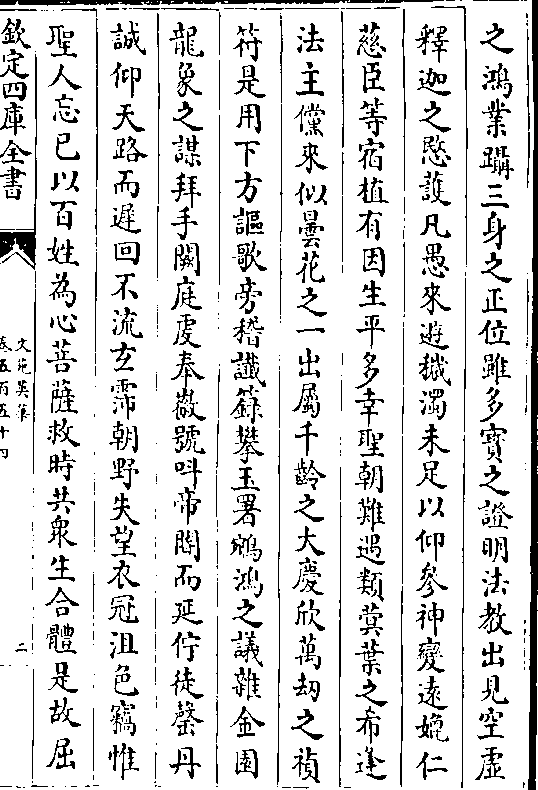 之鴻業躡三身之正位雖多寳之證明法教出見空虛
釋迦之愍護凡愚來遊穢濁未足以仰參神變逺媲仁
慈臣等宿植有因生平多幸聖朝難遇類蓂葉之希逢
法主儻來似曇花之一出屬千齡之大慶欣萬刼之禎
符是用下方謳歌旁稽讖籙攀玉署鵷鴻之議雜金園
龍象之謀拜手闕庭虔奉徽號呌帝閽而延佇徒罄丹
誠仰天路而遲回不流玄霈朝野失望衣冠沮色竊惟
聖人忘已以百姓為心菩薩救時共衆生合體是故屈
欽定四庫全書
文苑英華
卷五百五十四
二